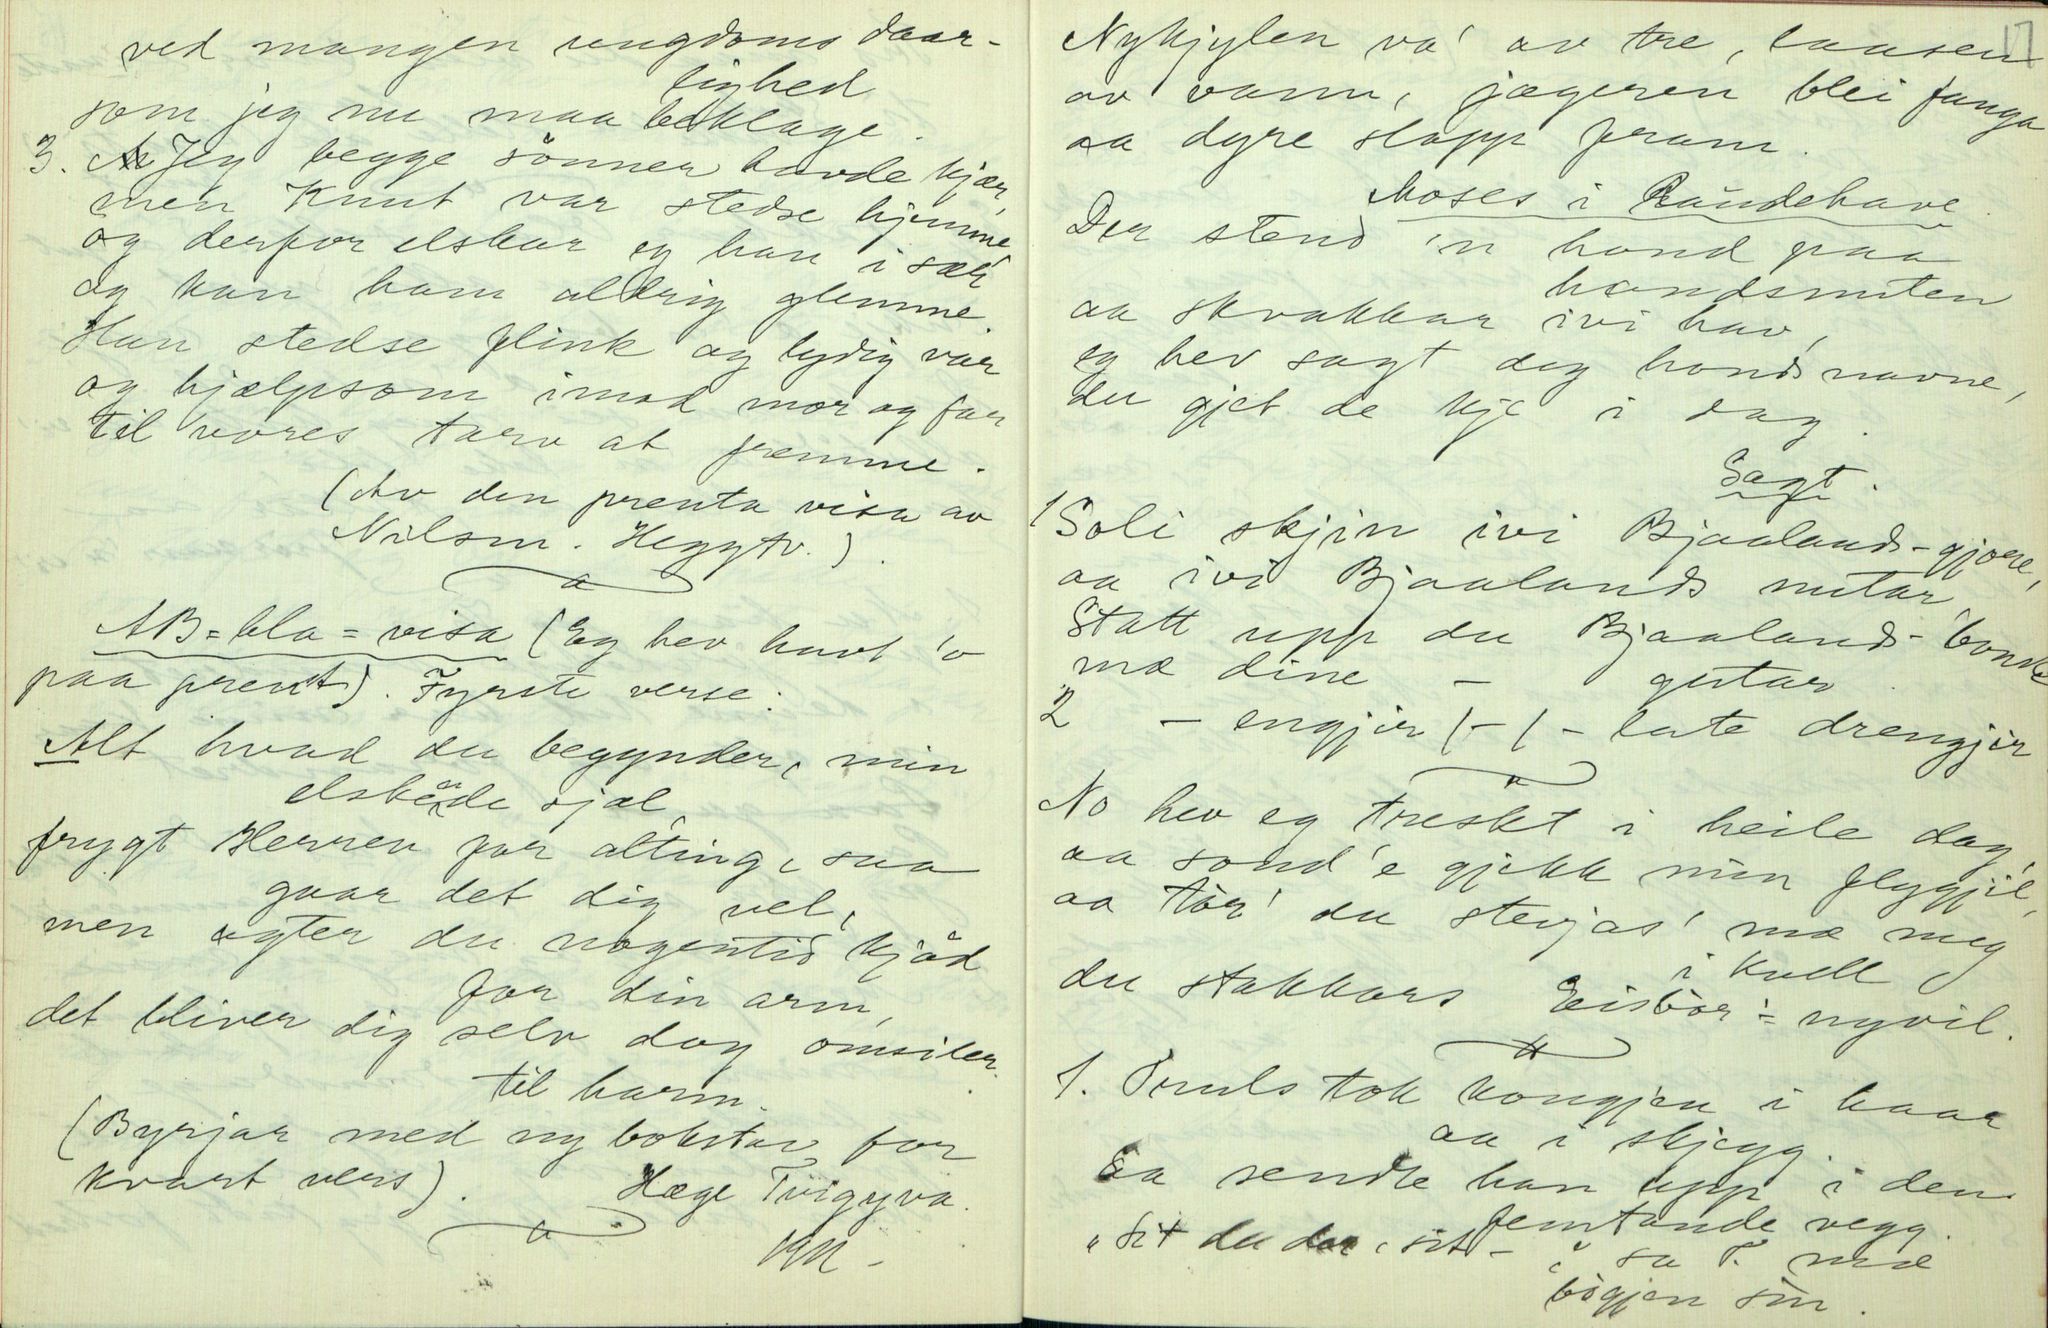 ved mangen ungdoms daar-
lighed
som jeg nu maa beklage.
3. Jeg begge sönner havde kjær,
men Knut var stedse hjemme
og derfor elskar eg han i sær
og kan ham aldrig glemme.
Han stedse flink og lydig var
og hjælpsom imod mor og far
til vores tarv at fremme.
(Av den prenta visa av
Nilsm. Heggtv.)
AB=bla=visa (Eg hev havt 'o
paa prent). Fyrste verse:
Alt hvad du begynder, min
elskede sjæl,
frygt Herren for alting, saa
gaar det dig vel,
men agter du nogentid kjöd
for din arm,
det bliver dig selv dog omsider
til harm.
(Byrjar med ny bokstav for
kvart vers).
Hæge Tvigyva.
17
Nykjylen va' av tre, laasen
av vann, jægeren blei fanga
aa dyre slapp fram.
Moses i Raudehave.
Der stend 'n hond paa
handsnuten
aa skvakkar ivi hav,
eg hev sagt deg honds navne,
du gjet de kje i dag.
Sagt.
1 Soli skjin ivi Bjaalands-gjore,
aa ivi Bjaalands nutar,
Statt upp du Bjaalands-bonde
mæ dine — gutar.
2 — engjir / – / – late drengjir
No hev eg treskt i heile dag,
aa sond'e gjekk min flygjil,
aa tör' du stevjas' mæ meg
i kvell
du stakkars Eisbör=nyvil.
1. Truls tok kongjen i haar
aa i skjegg.
Saa sendte han upp i den
femtande vegg.
"Sit du der, sit –", sa T. mæ
bögjen sin.